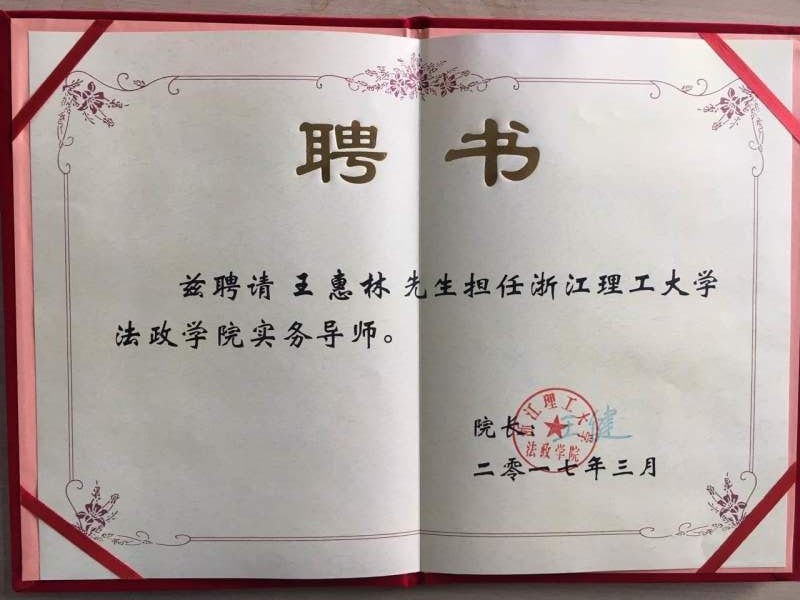 聘书
兹聘请 王惠林 先生担任浙江理工大学
法政学院实务导师。
院长：王健
浙江理工大学
法政学院
二零一七年三月